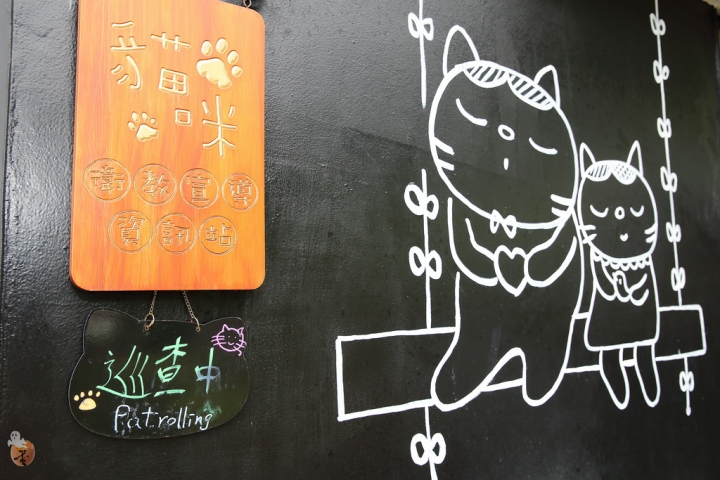 貓咪
衛教宣導
資訊站
巡查中
Patrolling